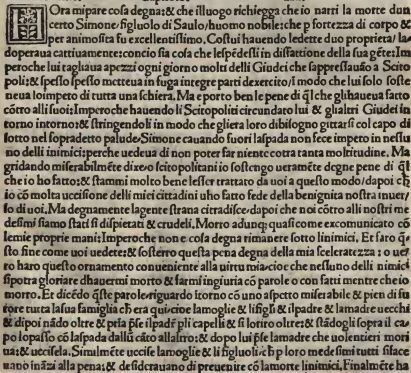 Ora mi pare cosa degna:& che illuogo richiegga che io narri la morte dun
certo Simone figluolo di Saulo/huomo nobile:che ꝑ fortezza di corpo &
per animosita fu excellentissimo. Costui hauendo ledette duo proprieta/la
doperaua cattiuamente:concio sia cosa che lespẽdessi in disfattione della sua gẽte:Im
peroche lui tagliaua apezzi ogni giorno molti delli Giudei che sappressauão a Scito
poli:& spesso spesso metteua in fuga integre parti dexercito/ĩ modo che lui solo soste
neua loimpeto di tutta una schiera. Ma e porto ben le pene di q̃l che glihaueua fatto
cõtro alli suoi:Imperoche hauendo li Scitopoliti circundato lui & glialtri Giudei in
torno intorno:& stringendoli in modo che gliera loro dibisogno gittarsi col capo di
sotto nel sopradetto palude/Simone cauando fuori laspada non fece impeto in nessu
no delli inimici:perche uedeua di non poter far niente cotra tanta moltitudine. Ma
gridando miserabilmẽte dixe/o scitopolitani io sostengo ueramẽte degne pene di q̃l
che io ho fatto:& stammi molto bene lesser trattato da uoi a questo modo/dapoi cħ
io cõ molta uccisione delli miei cittadini uho fatto fede della benignita nostra inuer/
so di uoi. Ma degnamente lagente strana citradisce/dapoi che noi cõtro alli nostri me
desimi siamo stati si dispietati & crudeli. Morro adunq; quasi come excomunicato cõ
lemie proprie mani:Imperoche non e cosa degna rimanere sotto linimici. Et faro q̃
sto fine come uoi uedete:& sosterro questa pena degna della mia sceleratezza: o ue/
ro haro questo ornamento conueniente alla uirtu mia/cioe che nessuno delli nimici
sipotra gloriare dhauermi morto & farmi ingiuria cõ parole o con fatti mentre che io
morro. Et dicẽdo q̃ste parole/riguardo itorno cõ uno aspetto miserabile & pien di fu
rore tutta lasua famiglia cħ era qui/cioe lamoglie & lifigli & ilpadre & lamadre uecchi
& dipoi nãdo oltre & pria p̃se ilpadr̃ pli capelli & si lotiro oltre:& stãdogli sopra il ca
po lopasso cõ laspada dallũ cãto allaltro:& dopo lui p̃se lamadre che uolentieri mori
ua:& uccisela. Similmẽte uccise lamoglie & li figluoli:cħ ꝑ loro medesimi tutti siface
uano inãzi alla pena:& desiderauano di preuenire cõ lamorte linimici. Finalmẽte ha